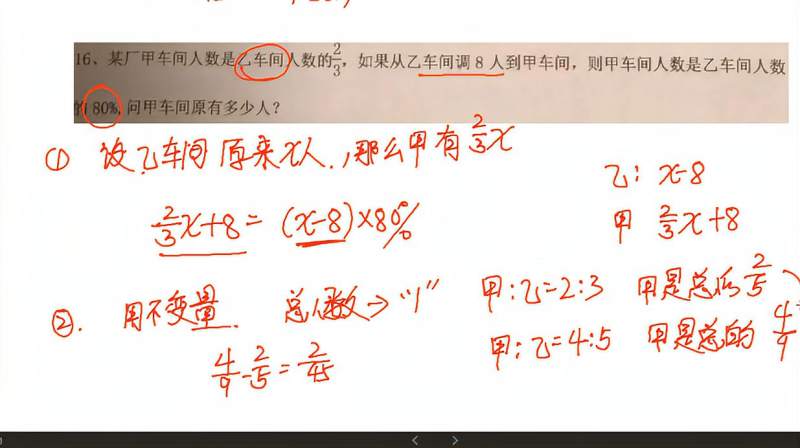 16、某厂甲车间人数是乙车间人数的2/3，如果从乙车间调8人到甲车间，则甲车间人数是乙车间人数
的80%,问甲车间原有多少人？
① 设乙车间原来x人，那么甲有2/3x
乙：x-8
2/3x+8=(x-8)×80%
甲 2/3x+8
②. 用不变量. 总人数→"1" 甲:乙=2:3 甲是总的2/5
甲:乙=4:5 甲是总的4/9
4/9-2/5=2/45